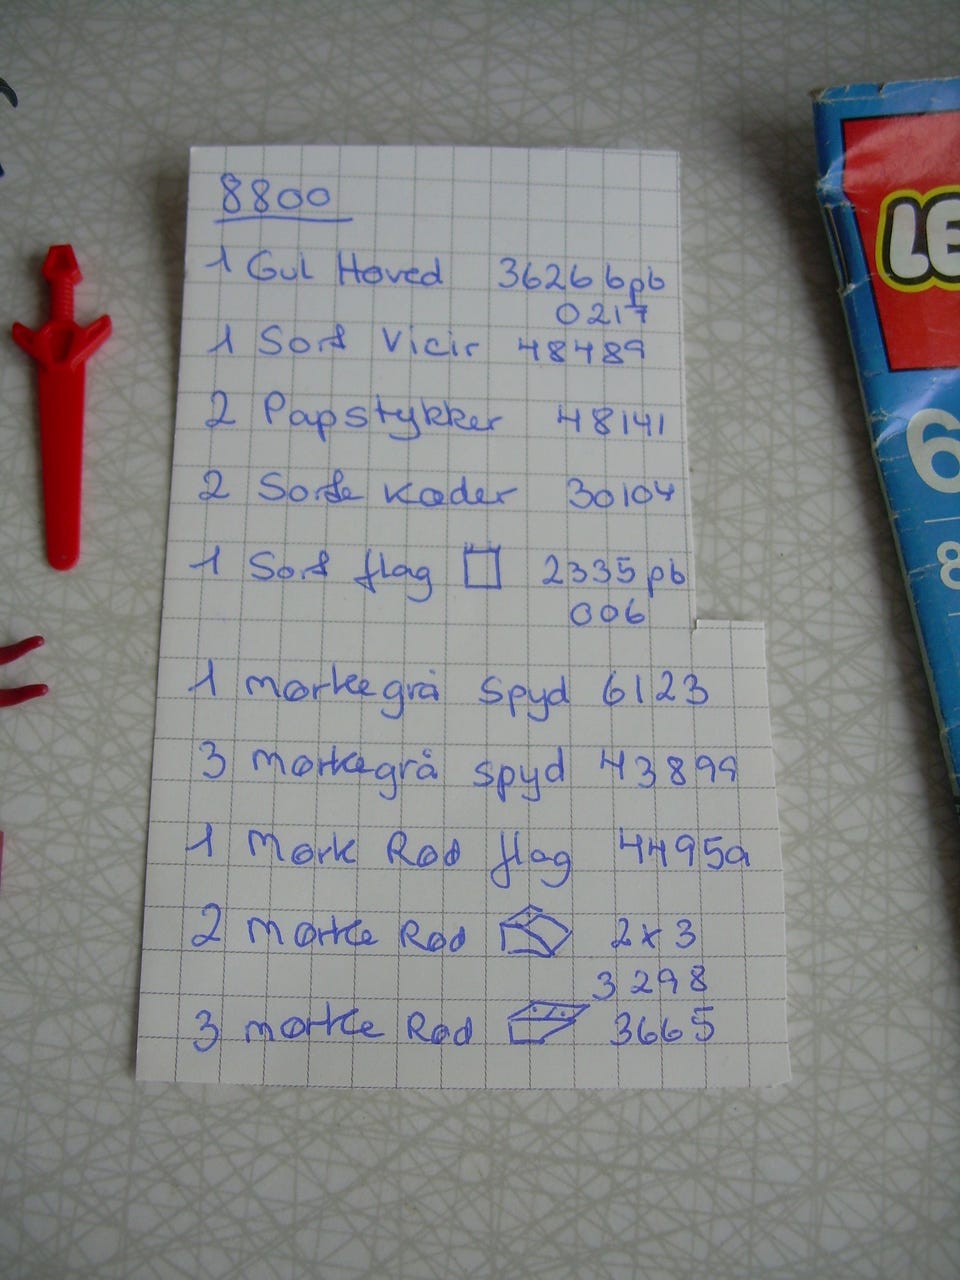 8800
1 Gul Hoved 3626bpb
0217
1 Sort Vicir 48489
2 Papstykker 48141
2 Sorte Kæder 30104
1 Sort flag 2335pb
006
1 mørkegrå Spyd 6123
3 mørkegrå Spyd 43899
1 Mørk Rød flag 4495a
2 mørke Rød 2x3
3298
3 mørke Rød 3665
LE
6
8